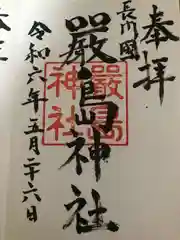 奉拝
長川国
嚴島神社
嚴島
神社
令和六年五月二十六日